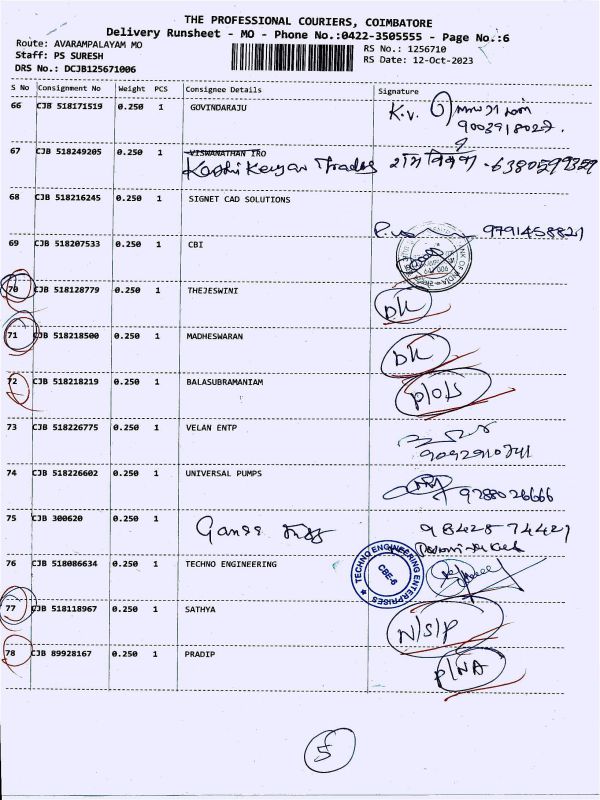 THE PROFESSIONAL COURIERS, COIMBATORE
Delivery Runsheet - MO - Phone No.:0422-3505555 - Page No.:6
Route: AVARAMPALAYAM MO
RS No.: 1256710
Staff: PS SURESH
RS Date: 12-Oct-2023
DRS No.: DCJB125671006
S No Consignment No Weight PCS Consignee Details Signature
66 CJB 518171519 0.250 1 GOVINDARAJU K.v.
9003918027.
67 CJB 518249205 0.250 1 VISWANATHAN IRO
6380599359
68 CJB 518216245 0.250 1 SIGNET CAD SOLUTIONS
9791458821
69 CJB 518207533 0.250 1 CBI
70 CJB 518128779 0.250 1 THEJESWINI DK
71 CJB 518218500 0.250 1 MADHESWARAN DK
72 CJB 518218219 0.250 1 BALASUBRAMANIAM P/O/S
73 CJB 518226775 0.250 1 VELAN ENTP
9092910741
74 CJB 518226602 0.250 1 UNIVERSAL PUMPS 9788026666
75 CJB 300620 0.250 1 9842574421
76 CJB 518086634 0.250 1 TECHNO ENGINEERING
TECHNO ENGINEERING ENTERPRISES
CBE-6
77 CJB 518118967 0.250 1 SATHYA N/S/P
78 CJB 89928167 0.250 1 PRADIP P/NA
5